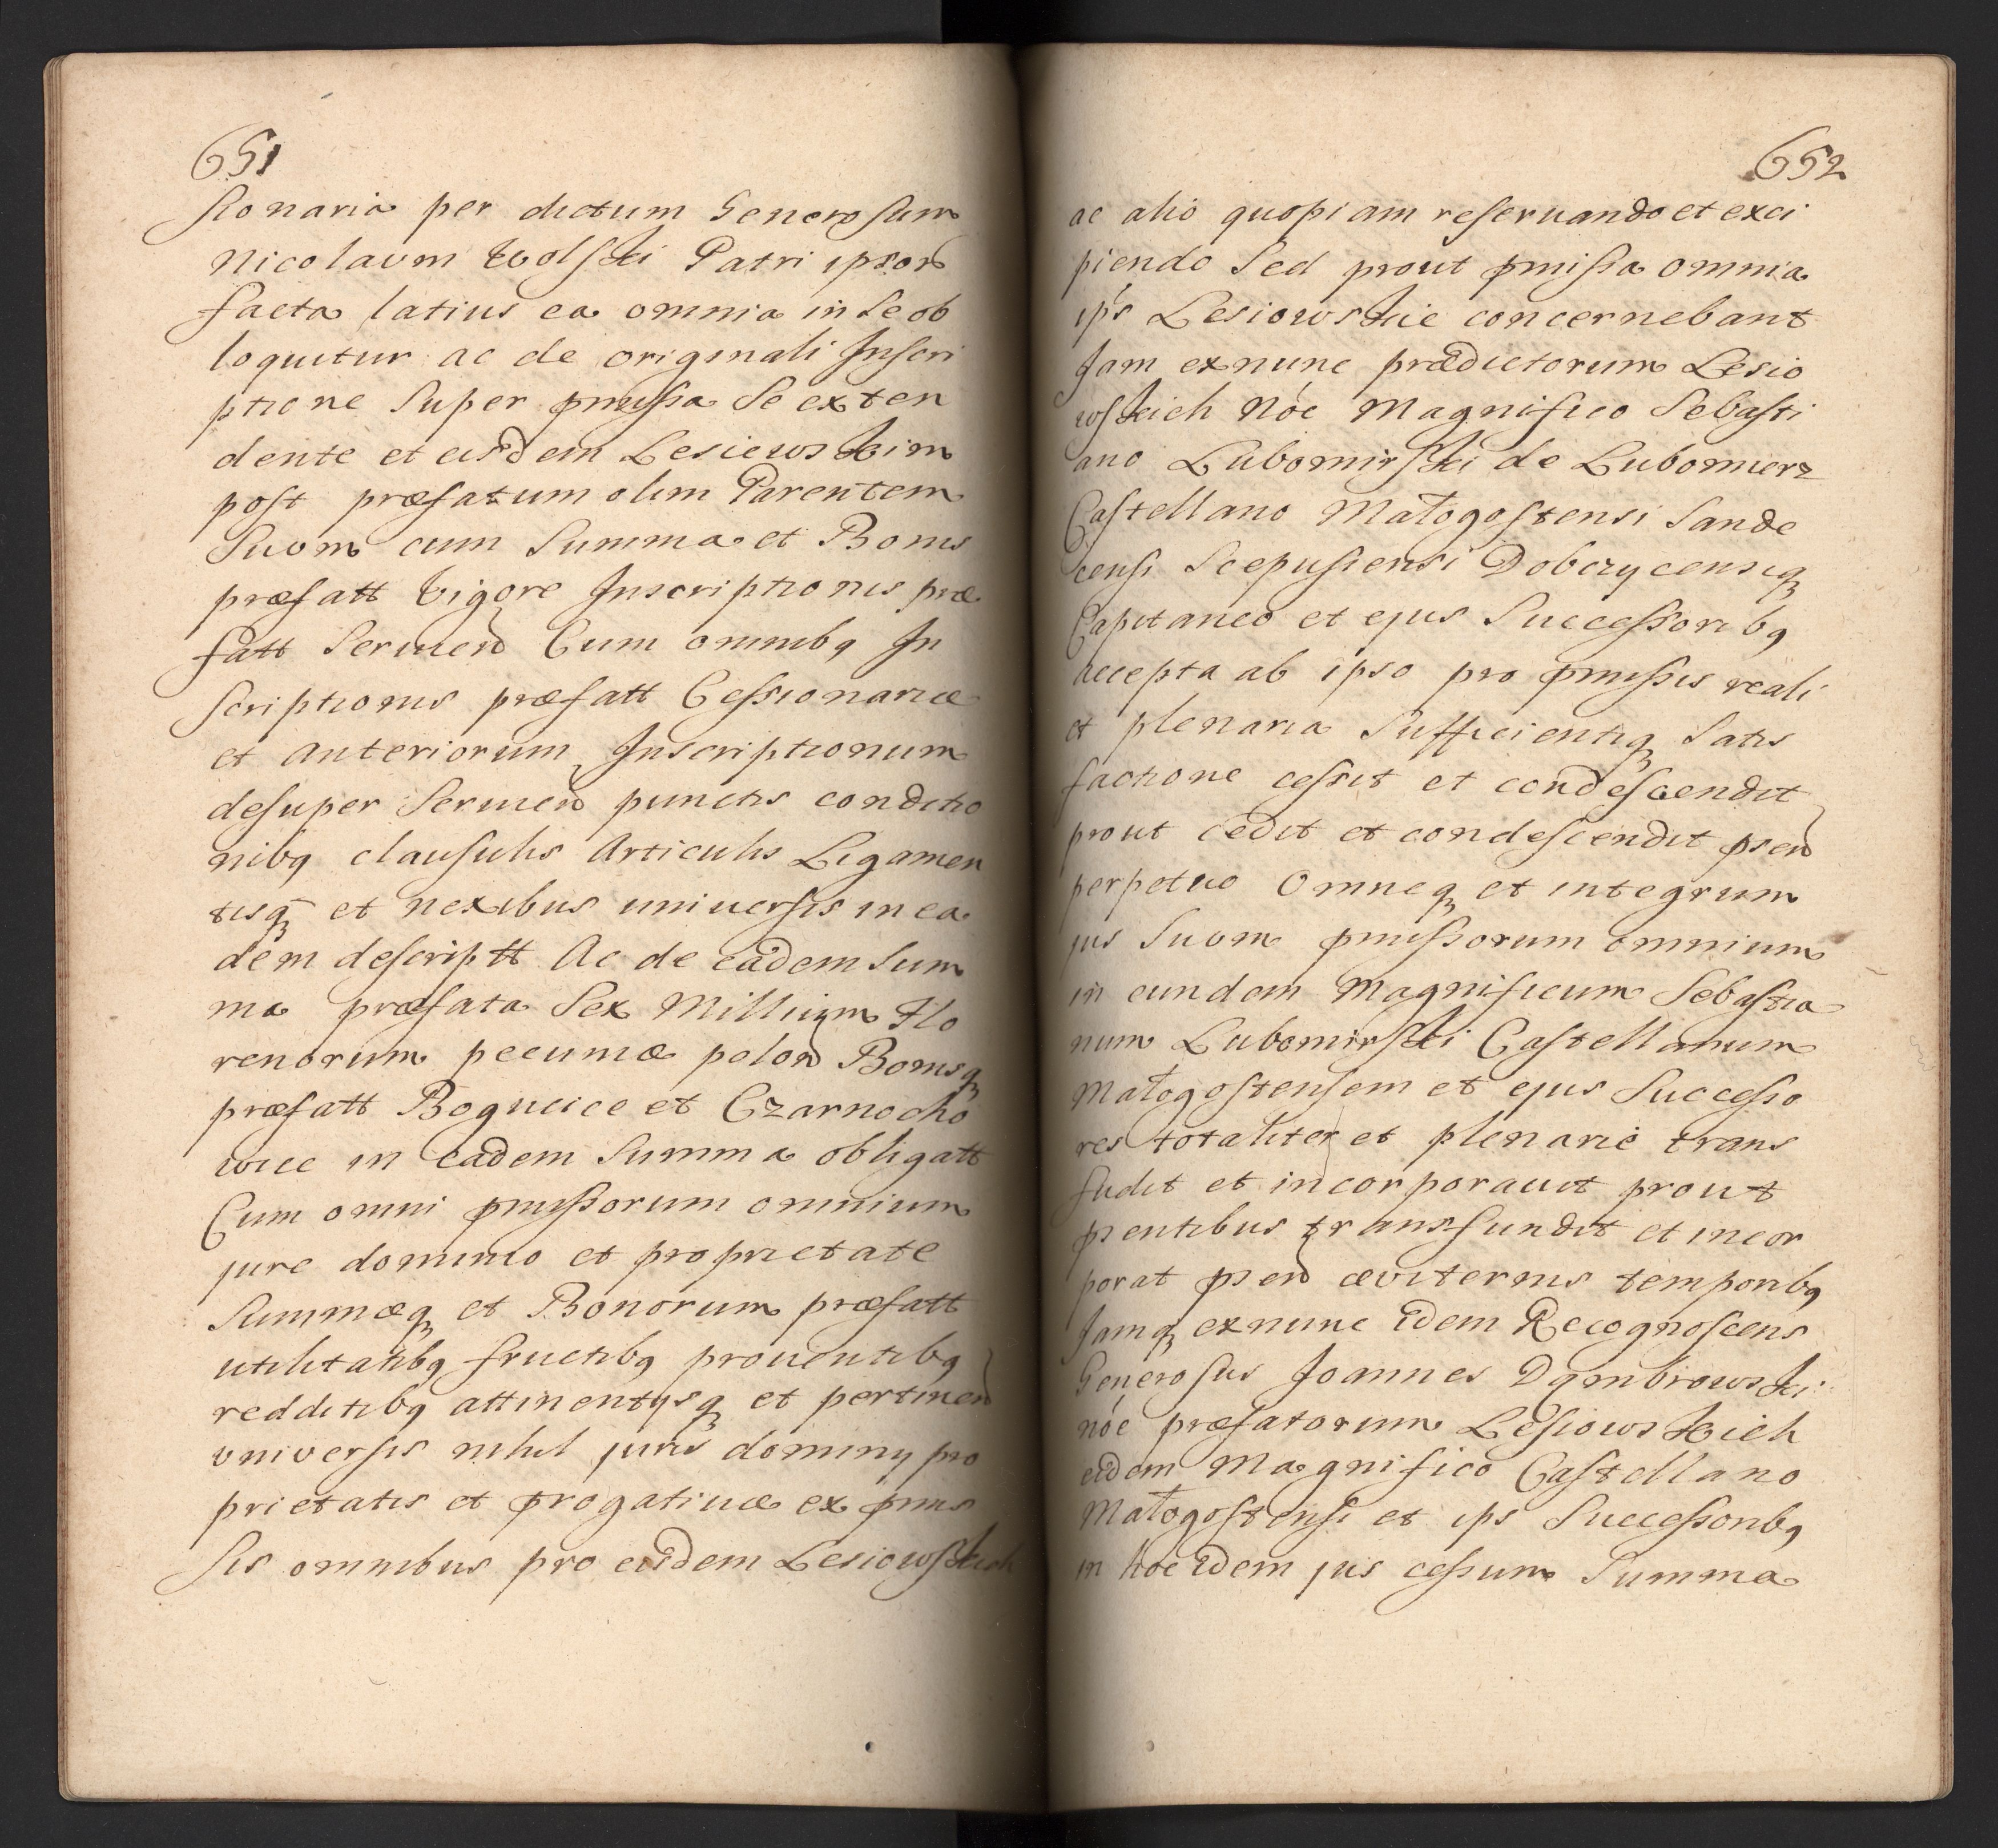 651
sionaria per dictum Generosum
Nicolaum Wolski Patri ipsorῦ
facta latius ea omnia in se ob
loquitur ac de originali Inscri
ptione super pmissa se exten
dente et eisdem Lesiewskim
post præfatum olim Parentem
Suom cum Summa et Bonis
præfatt Vigore Inscriptionis præ
fatt Servien Cum omnibq In
scriptionis præfatt Cessionariæ
et anteriorum Inscriptionum
desuper Servien punctis conditio
nibq clausulis Articulis Ligamen
tisq et nexibus universis in ea
dem descriptt Ac de eadem Sum
ma præfata Sex Millium Flo
renorum pecuniæ polon Bonisq
præfatt Bogucice et Czarnocho
wice in eadem Summa obligatt
Cum omni pmissorum omnium
jure dominio et proprietate
Summæq et Bonorum præfatt
utilitatibq fructibq proventibq
redditibq attinentysq et pertinen
universis nihil juris dominy pro
prietatis et progativæ ex pmis
sis omnibus pro eisdem Lesiowskich
652
ac alio quopiam reservando et exci
piendo Sed prout pmissa omnia
ips Lesiowskie concernebant
Jam exnunc prædictorum Lesio
wskich nõe Magnifico Sebasti
ano Lubomirski de Lubomierz
Castellano Małogostensi Sande
censi Scepusiensi Dobczycensiq
Capitaneo et ejus Successoribq
accepta ab ipso pro pmissis reali
et plenaria Sufficientiq Satis
factione cessit et condescendit
prout cedit et condescendit psen
perpetuo Omneq et integrum
jus Suom pmissorum omnium
in eundem Magnificum Sebastia
num Lubomirski Castellanum
Małogostensem et ejus Successo
res totaliter et plenarie trans
fudit et incorporavit prout
psentibus transfundit et incor
porat psen æviternis temporibq
Jamq exnunc idem Recognoscens
Generosus Joannes Dąmbrowski
nõe præfatorum Lesiowskich
eidem Magnifico Castellano
Małogostensi et ips Successoribq
in hoc idem jus cessum Summa